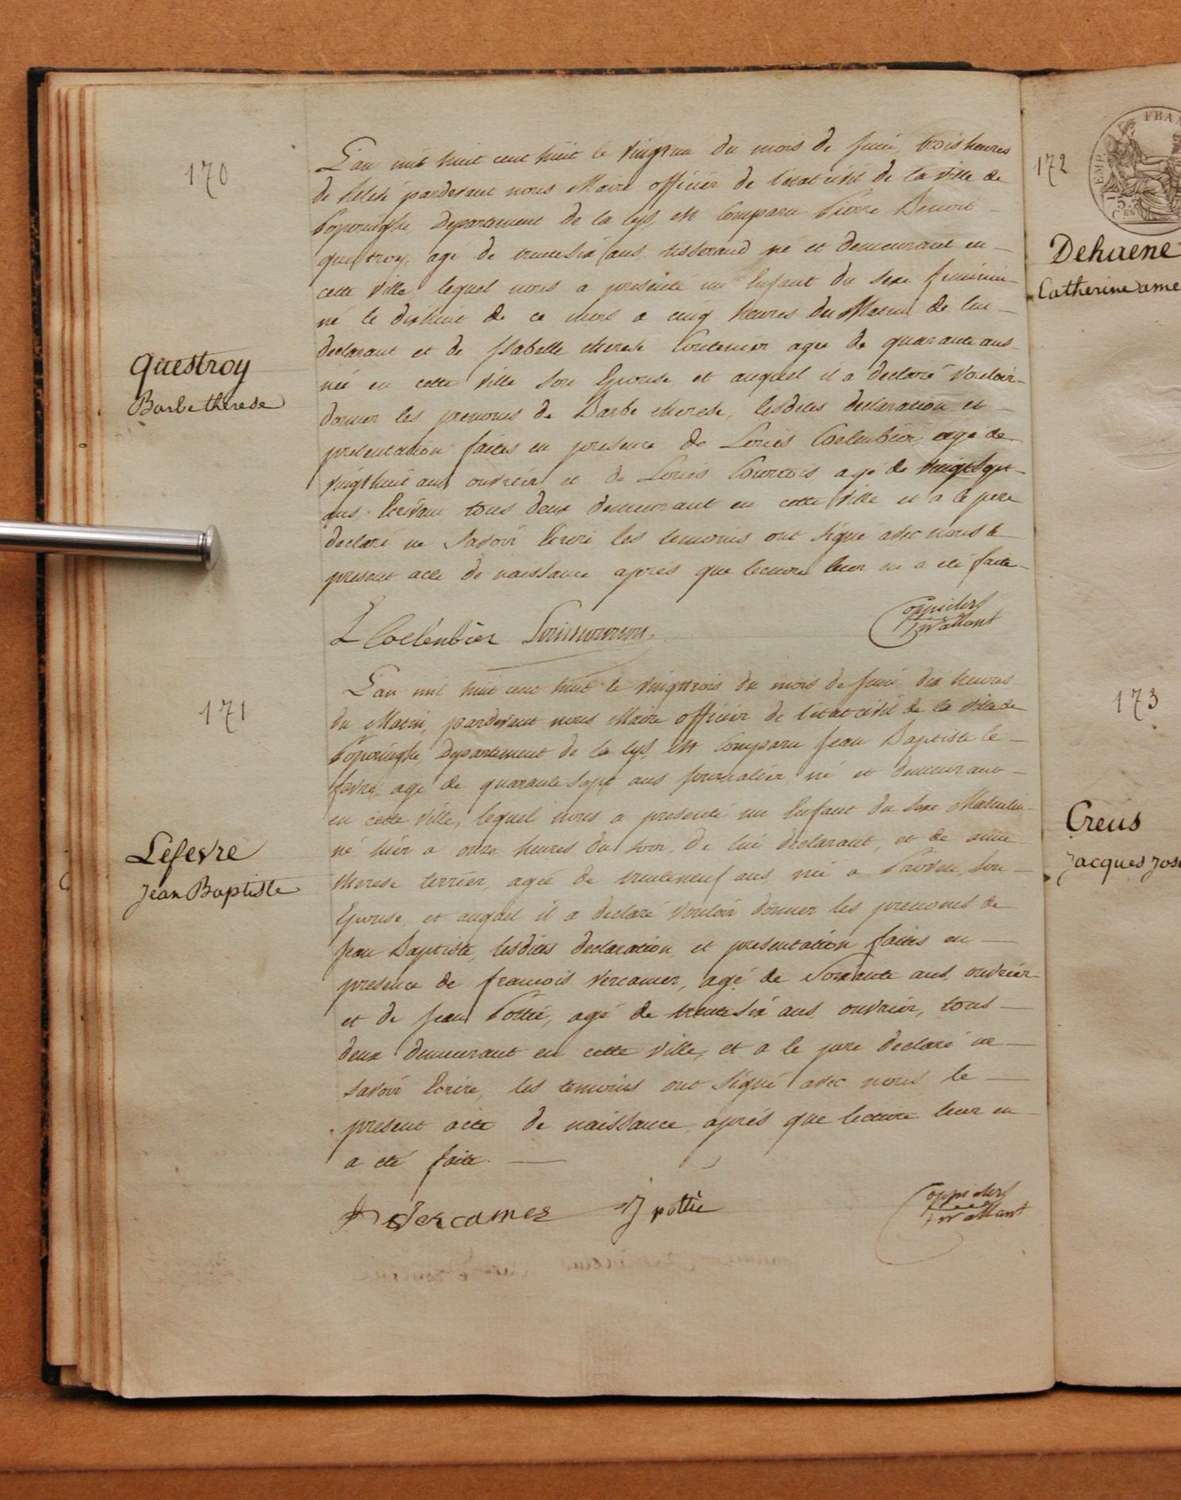 170
L'an mil huit cent huit le vingtun du mois de juin, trois heures
de relevé pardevant nous Maire officier de l'état civil de la ville de
Poperinghe Departement de la lys, est comparu Pierre Benoit
questroy, agé de trentesix ans tisserand né et demeurant en
cette ville lequel nous a présenté un Enfant du sexe féminin
né le dixhuit de ce mois a cinq heures du Matin de lui
declarant et de Isabelle therese agée de quarante ans
née en cette ville son Epouse et auquel il a declaré vouloir
donner les prenoms de Barbe therese, lesdites declaration et
presentation faites en presence de Louis Coelenbier agé de
vingthuit ans ouvrier et de Louis Courtois agé de vingtsept
ans Ecrivain tous deux demeurant en cette ville et a le pere
declaré ne savoir Ecrire les temoins ont signé avec nous le
present acte de naissance après que lecture leur en a été faite
Questroy
Barbe therese
L Coelenbier
171
L'an mil huit cent huit le vingttrois du mois de juin dix heures
du Matin, pardevant nous Maire officier de l'état civil de la ville de
Poperinghe, Departement de la lys, est comparu Jean Baptiste le
fevre, agé de quarante sept ans journalier né et demeurant
en cette ville, lequel nous a presenté un Enfant du sexe Masculin
né hier a onze heures du soir, de lui declarant, et de
therese terrier, agée de trenteneuf ans, née a son
Epouse, et auquel il a declaré vouloir donner les prenoms de
Jean Baptiste, lesdites declaration et presentation faites en
presence de françois Vercamer, agé de Soixante ans, ouvrier
et de Jean Pottié, agé de trentesix ans ouvrier, tous
deux demeurant en cette ville, et a le pere declaré ne
savoir Ecrire, les temoins ont signé avec nous le
present acte de naissance après que lecture leur en
a été faite.
Lefevre
Jean Baptiste
Vercamer J pottié
172
EMP FRAN
Dehaene
Catherine ame
173
Creus
Jacques Jos